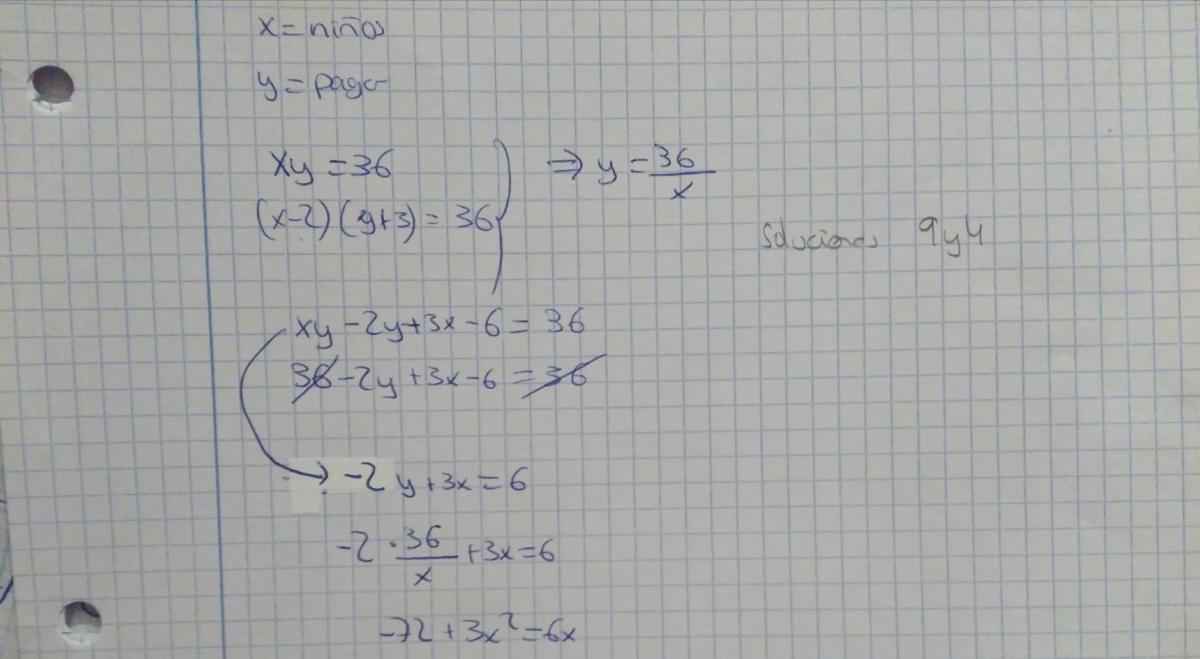 x = niños
y = paga
xy = 36 ⇒ y = 36/x
(x-2)(y+3) = 36
Soluciones 9 y 4
xy - 2y + 3x - 6 = 36
36 - 2y + 3x - 6 = 36
-2y + 3x = 6
-2 · 36/x + 3x = 6
-72 + 3x² = 6x